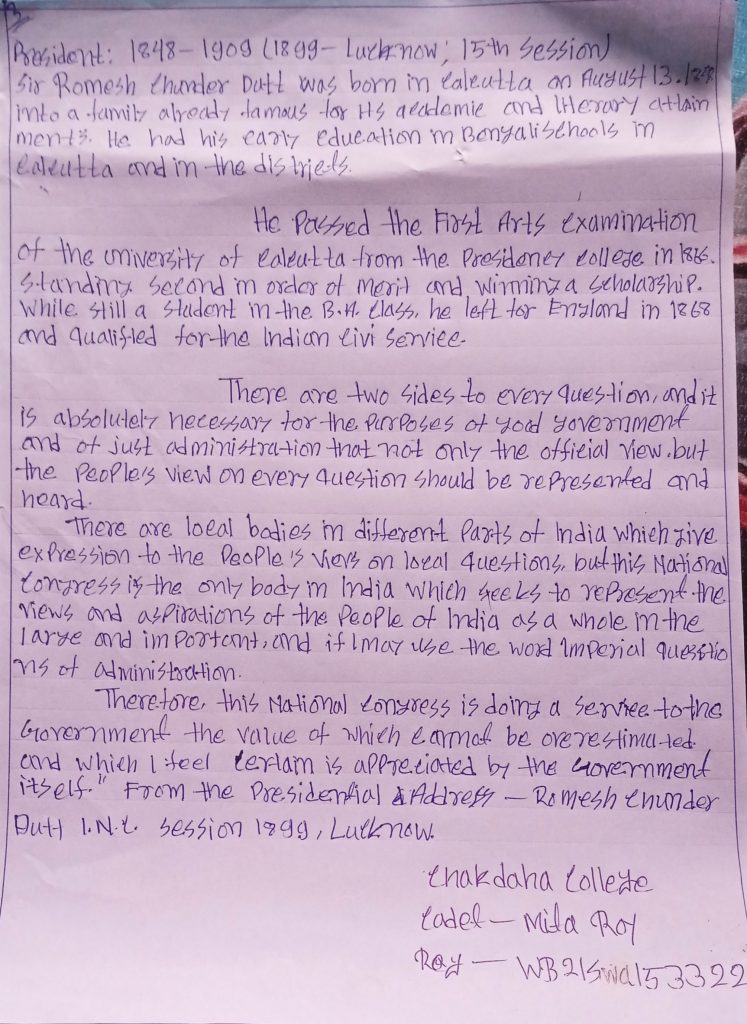 President: 1848-1909 (1899- Lucknow; 15th Session)
Sir Romesh Chunder Dutt was born in Calcutta on August 13.1848
into a family already famous for Hs academic and literary attain
ments. He had his early education in Bengali schools in
Calcutta and in the districts.
He Passed the First Arts Examination
of the university of Calcutta from the Presidency College in 1866.
Standing Second in order of Merit and winning a scholarship.
While still a student in the B.A. Class, he left for England in 1868
and qualified for the Indian Civi Service.
There are two sides to every question, and it
is absolutely necessary for the purposes of good government
and of just administration that not only the official view. but
the People's view on every question should be represented and
heard.
There are local bodies in different Parts of India which give
expression to the People's views on local questions, but this National
Congress is the only body in India which seeks to represent the
views and aspirations of the People of India as a whole in the
large and important, and if I may use the word Imperial questio
ns of administration.
Therefore, this National Congress is doing a service to the
Government the value of which cannot be overestimated.
and which I feel certain is appreciated by the Government
itself." From the Presidential Address - Romesh Chunder
Dutt I.N.C. Session 1899, Lucknow.
Chakdaha College
Cadet - Mita Roy
Roy - WB21SWA153322